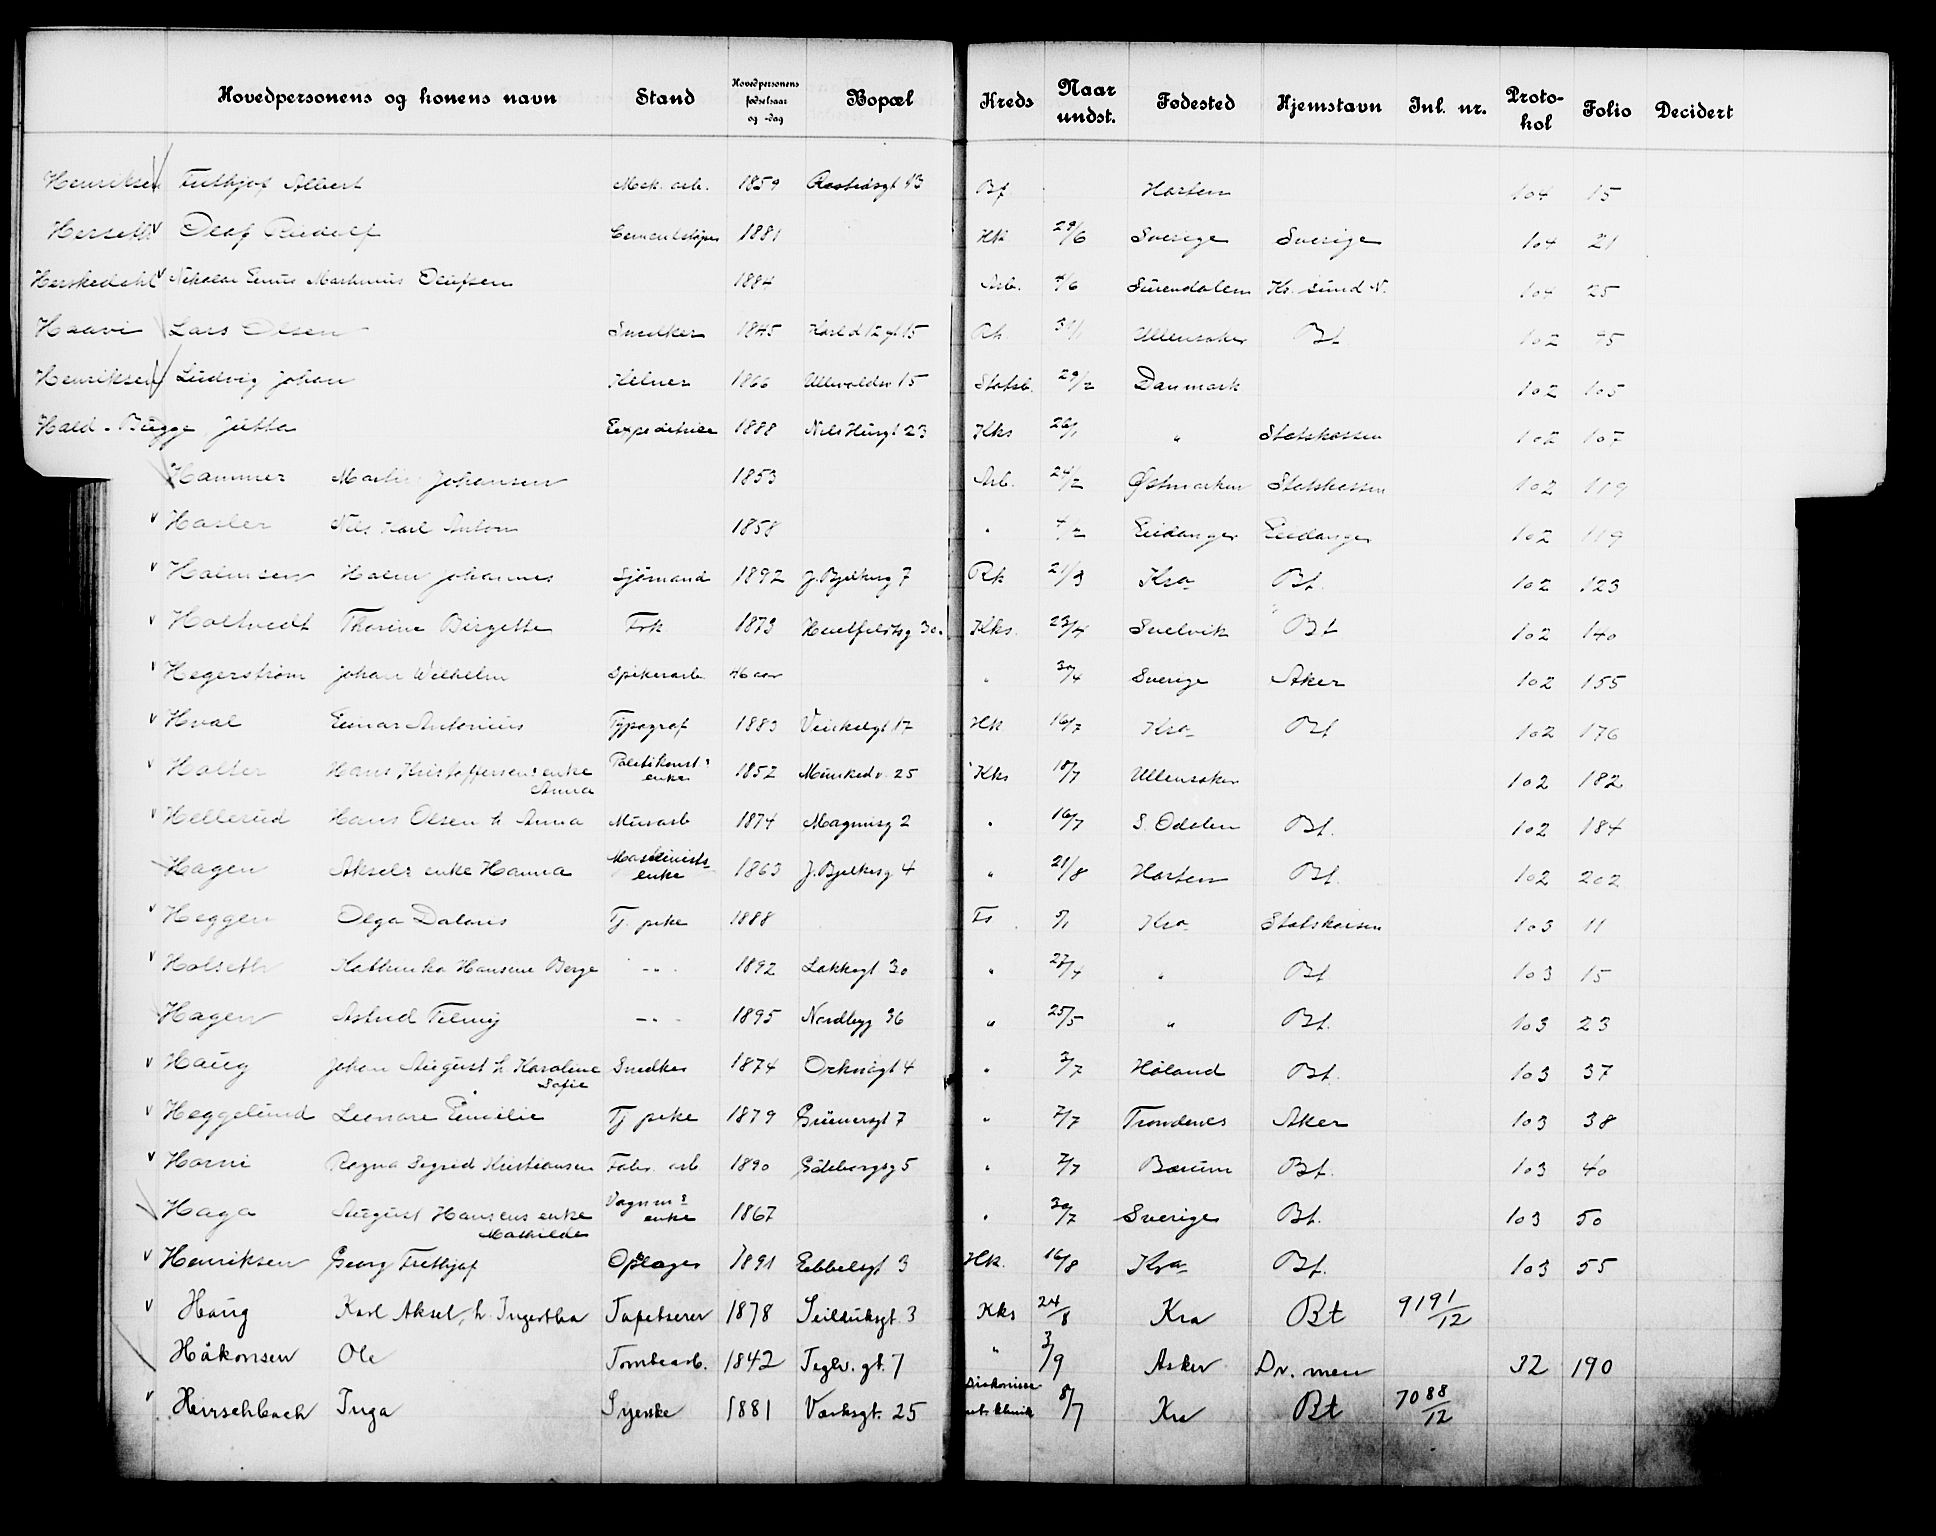 Hovedpersonens og konens navn Stand Hovedpersonens fødselsaar og -dag Bopæl Kreds Naar undst. Fødested Hjemstavn Inl. nr. Proto-kol Folio Decidert
Henriksen Frithjof Albert Mek. arb. 1859 13 Bf Horten 104 15
Herseth Olaf Rudolf Cementstøper 1881 Hk 29/6 Sverige Sverige 104 21
Herskedahl Nikolai Enius Martinius Olufsen 1884 Arb. 4/6 Surendalen Kr. sund N. 104 25
Haavi Lars Olsen Snedker 1845 Karl d 12 gt 15 Rk 31/1 Ullensaker Bt 102 95
Henriksen Ludvig Johan Kelner 1866 Ullevoldsv 15 29/2 Danmark 102 105
Hald-Bugge Jutta 1888 Nils Husgt 23 Kks 26/1 " Statskassen 102 107
Hammer Martin Johansen 1853 Arb. 24/2 Østmarken Statskassen 102 119
Hasler Nils Karl Anton 1858 " 4/2 Eidanger Eidanger 102 119
Holmsen Holm Johannes Sjømand 1892 J. Bjelkesg 7 Rk 21/3 Kra Bt. 102 123
Holtvedt Thorine Birgitte Frk 1873 Huitfeldtsg 30. Kks. 23/4 Svelvik Bt 102 140
Hegerstrøm Johan Wilhelm Spikerarb. 46 aar " 30/4 Sverige Aker 102 155
Hval Einar Antonius Typograf 1883 Vinkelgt 17 Hk 16/7 Kra Bt 102 176
Holter Hans Kristoffersens enke Anna Politikonst.s enke 1852 Munked v. 25 Kks 18/7 Ullensaker 102 182
Hellerud Hans Olsen h Anna Murarb 1874 Magnusg 2 " 16/7 S. Odalen Bt. 102 184
Hagen Aksels enke Hanna Maskinists enke 1863 J. Bjelkesg 4 " 21/8 Horten Bt. 102 202
Heggen Olga Dolaris Tj. pike 1888 Fs 5/1 Kra Statskassen 103 11
Holseth Kathinka Hansine Berge -"- 1892 Lakkegt 30 " 27/4 " Bt 103 15
Hagen Astrid -"- 1895 Nordbygg 36 " 25/5 " Bt. 103 23
Haug Johan August h Karoline Sofie Snedker 1874 Orknøgt 4 " 3/7 Høland Bt. 103 37
Heggelund Leonore Emilie Tj pike 1879 Grünersgt 7 " 7/7 Trondenes Aker 103 38
Horni Ragna Sigrid Kristiansen Fabr. arb. 1890 Göteborgsg 5 " 7/7 Bærum Bt. 103 40
Haga August Hansens enke Mathilde Vognm.s enke 1867 " 30/7 Sverige Bt. 103 50
Henriksen Georg Frithjof Oplager 1891 Eebbelsgt 3 Hk. 16/8 Kra Bt. 103 55
Haug Karl Aksel, h. Ingertha Tapetserer 1878 Seilduksgt. 3 Kks 24/8 Kra Bt 9191/12
Håkonsen Ole Tomtearb. 1842 Teglv. gt. 7 " 3/9 Asker Dr.men 32 190
Hirschbach Inga Syerske 1881 Værksgt. 25 8/7 Kra Bt 7088/12